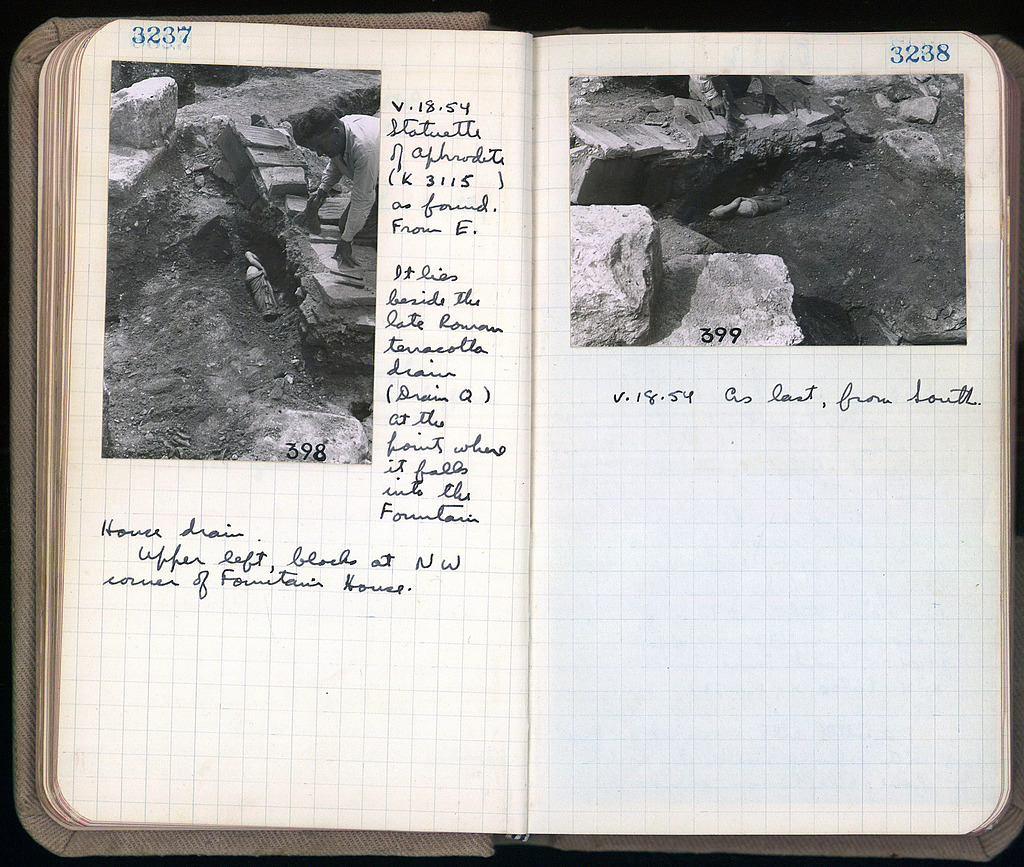 3237
V.18.54
Statuette
of Aphrodite
(K 3115 )
as found.
From E.
It lies
beside the
late Roman
terracotta
drain
(Drain Q)
at the
point where
it falls
into the
Fountain
House drain.
Upper left, blocks at NW
corner of Fountain House.
398
3238
399
V.18.54 As last, from South.